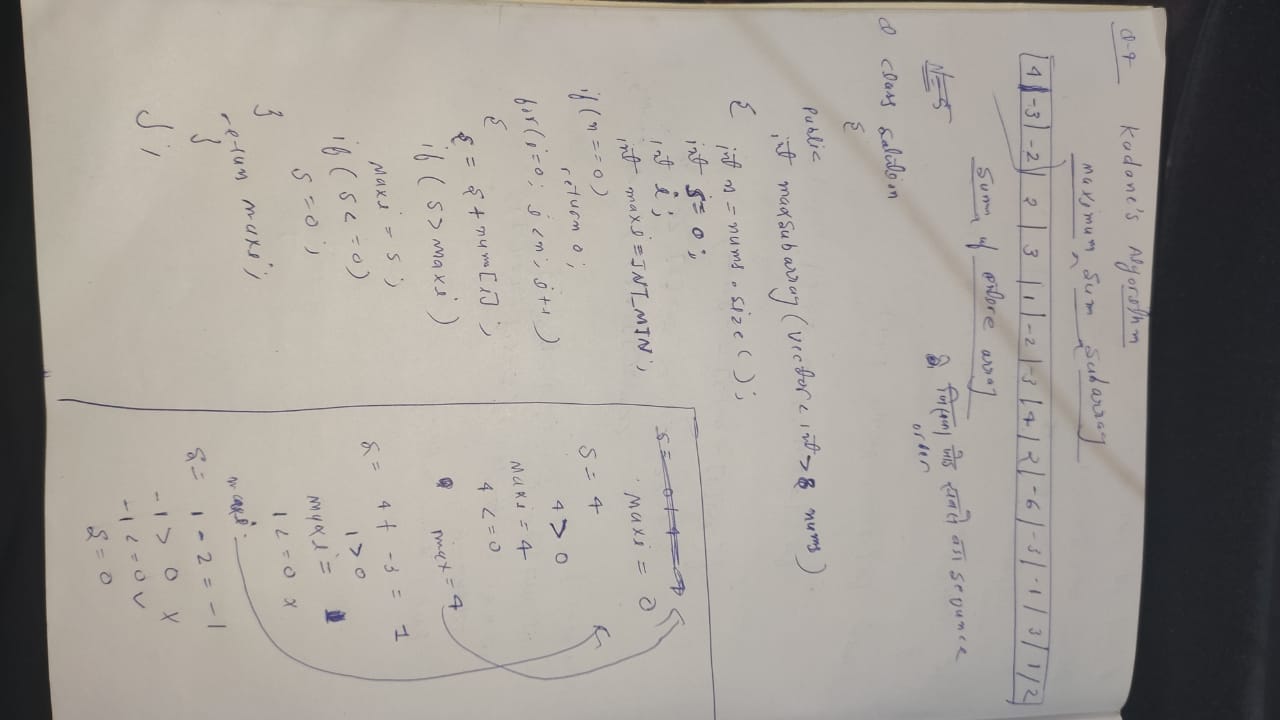 Q-4 Kadone's Algorithm
maximum sum subarray
4 | -3 | -2 | 2 | 3 | 1 | -2 | -3 | 4 | 2 | -6 | -3 | -1 | 3 | 1 | 2
sum of entire array
N=5
order
class solution
{
public
int maxsubarray(vector<int>& nums)
{
int n = nums.size();
int s=0;
int i;
int maxi=INT_MIN;
if(n==0)
return 0;
for(i=0; i<n; i++)
{
s = s+num[i];
if(s>maxi)
maxi = s;
if(s<=0)
s=0;
}
return maxi;
}
};
maxi = 0
s = 4
4 > 0
maxi = 4
4 <= 0
max = 4
s = 4 + -3 = 1
1 > 0
maxi =
1 <= 0 x
maxi
s = 1 - 2 = -1
-1 > 0 x
-1 <= 0 ✓
s = 0